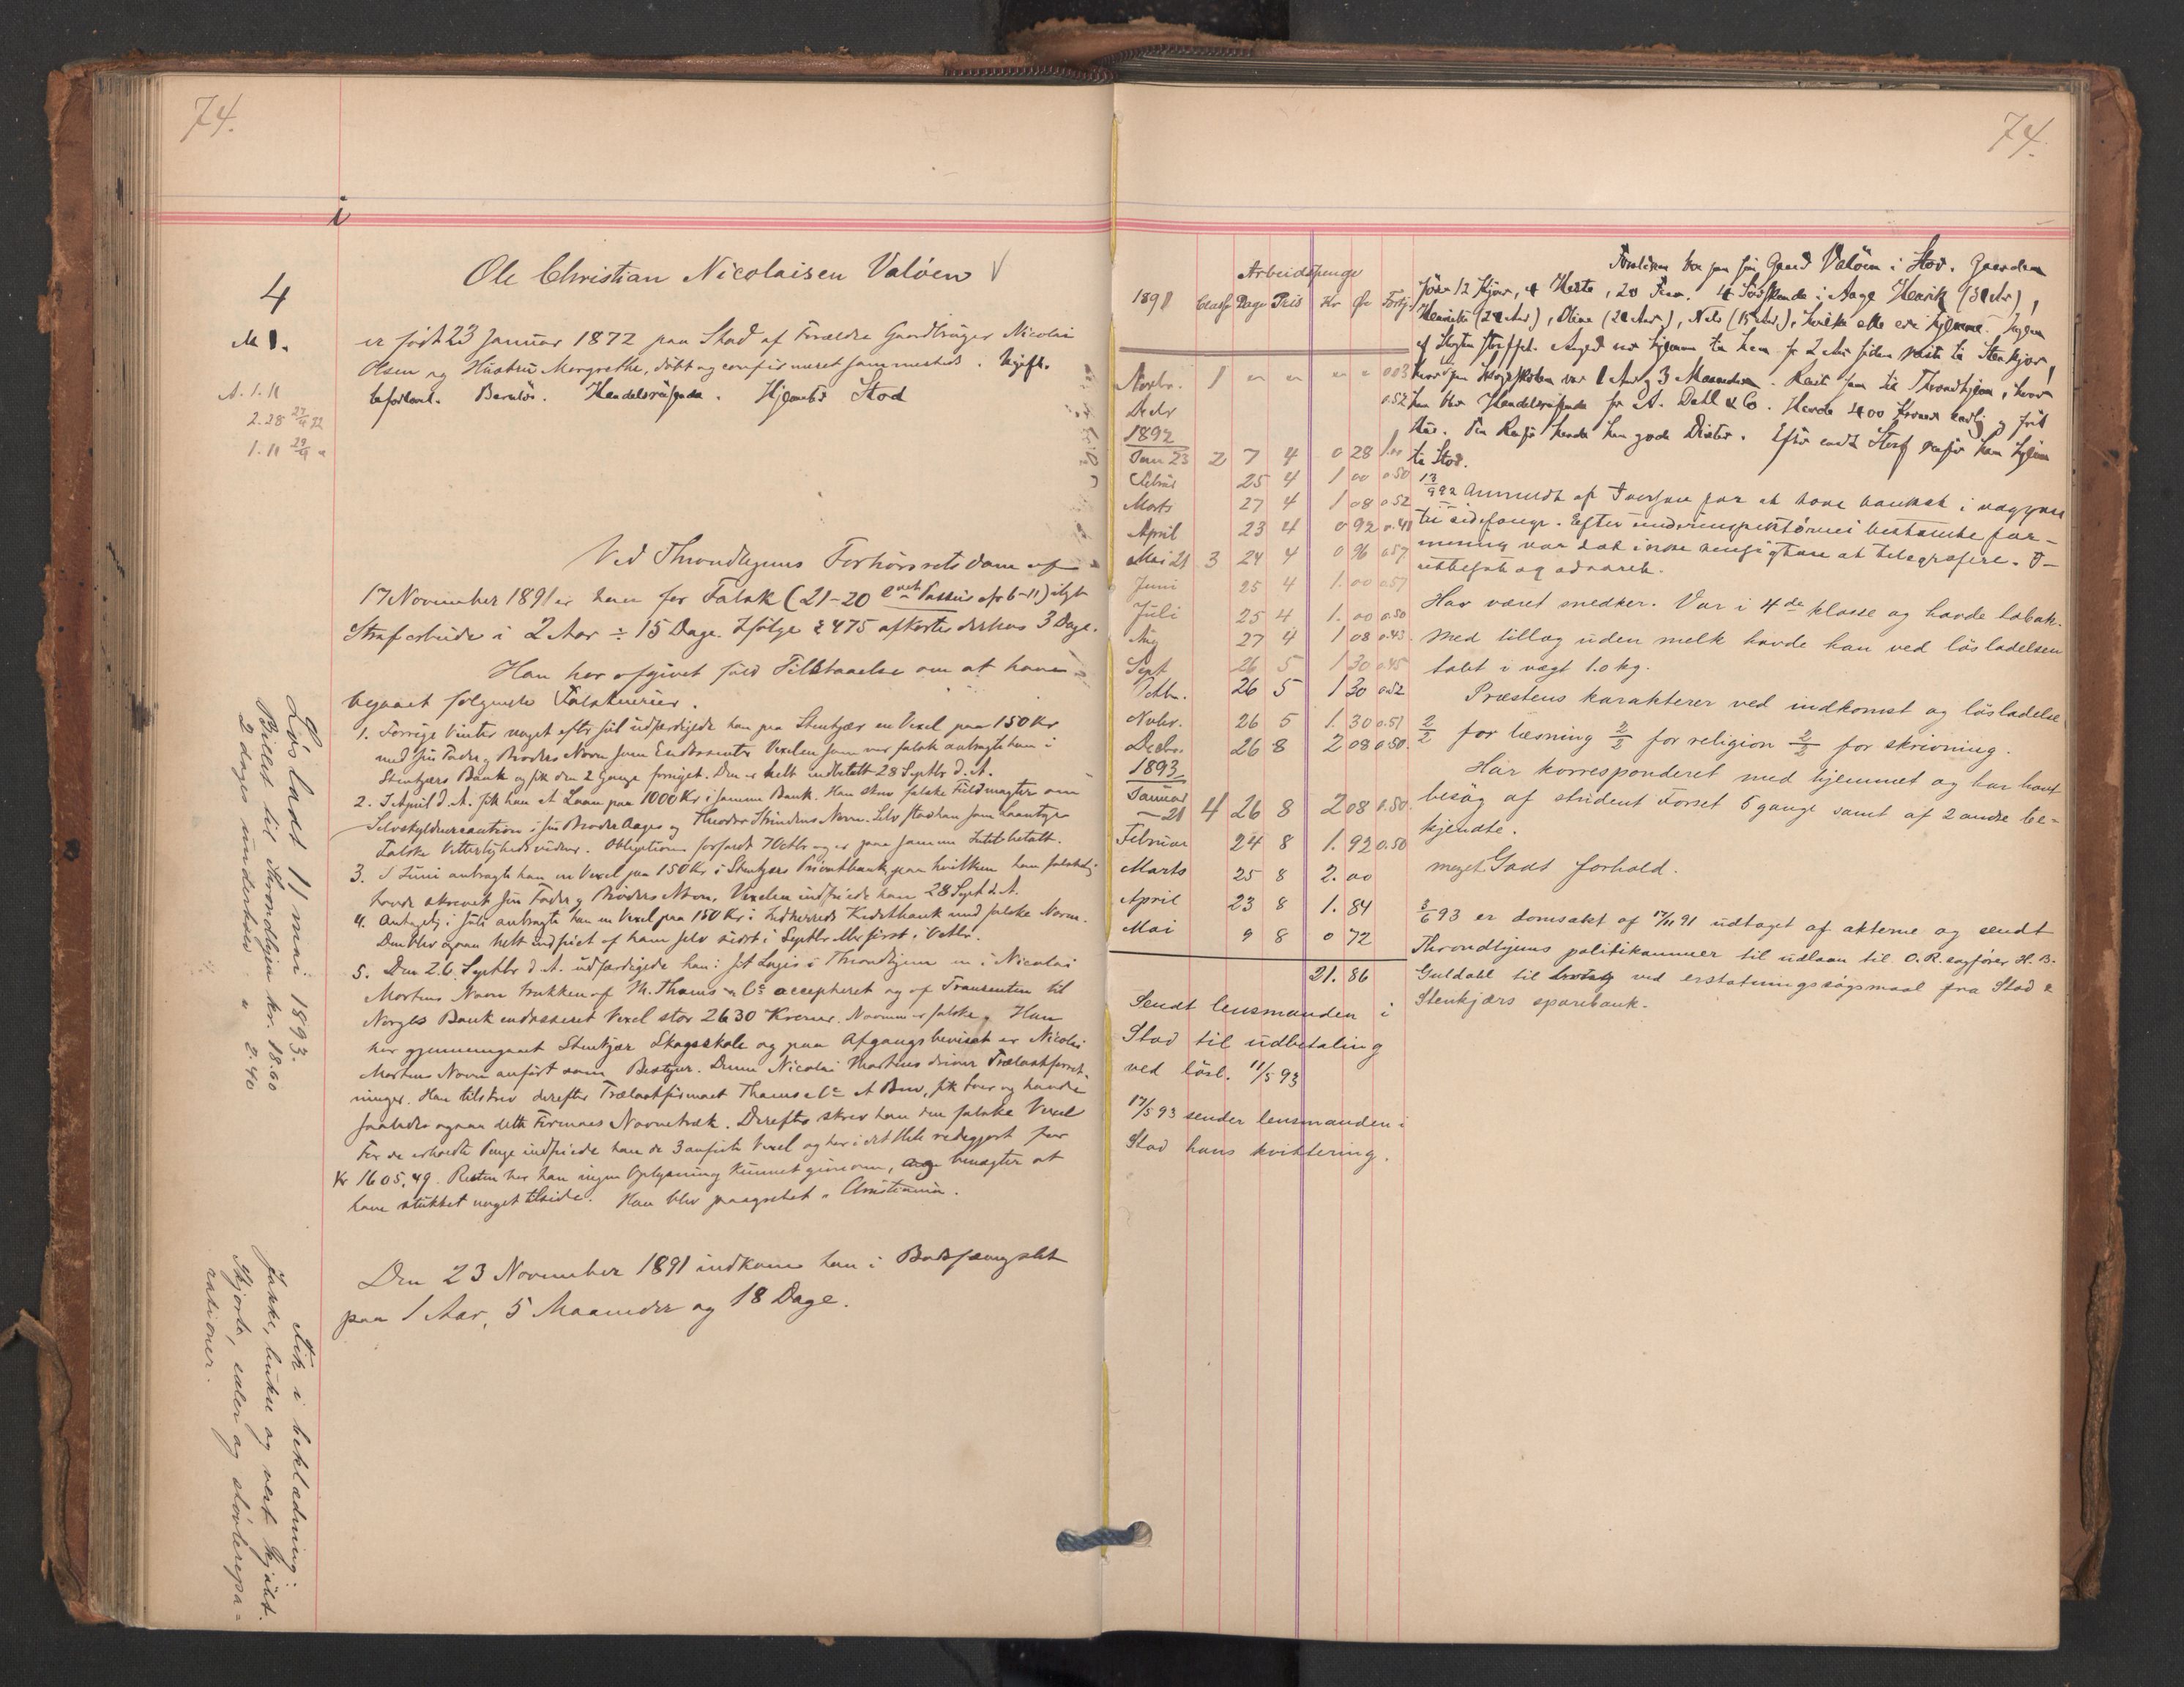 74.
i
4
M 1.
A. 1. 11
2. 28 27/4 92
1. 11 29/4
Ole Christian Nicolaisen Valöen
er födt 23 Januar 1872 paa Stod af Forældre Gaardbruger Nicolai
Olsen og Hustru Mergrethe, döbt og confirmeret sammesteds. Ugift.
Barnlös. Handelsreisende. Hjemsted Stod
Ved Throndhjems Forhörsrets dom af
17 November 1891 er han for Falsk (21-20 Passus cfr 6-11) ilagt
Strafarbeide i 2 Aar ÷ 15 Dage. Ifölge § 475 afkortes derhos 3 Dage.
Han har afgivet fuld Tilstaaelse om at have
begaaet fölgende Falsknerier.
1. Forrige Vinter noget efter Jul udfærdigede han paa Stenkjær en Vexel paa 150 Kr
med sin Fader og Broders Navn som Endossenter. Vexelen som var falsk anbragte han i
Stenkjærs Bank og fik den 2 Gange fornyet. Den er helt indbetalt 28 Septbr d. A.
2. I April d. A. fik han et Laan paa 1000 Kr i samme Bank. Han skrev falske Fuldmagter om
Selvskyldnercaution i sin Broder Aages og Theodor Strindens Navn. Selv stod han som Laantager
Falske Vitterlighedsvidner. Obligationen forfaldt 7 Octbr og er paa samme Intet betalt.
3. I Juni anbragte han en Vexel paa 150 Kr i Stenkjærs Privatbank paa hvilken han falskelig
havde skrevet sin Fader og Broders Navn. Vexelen indfriede han 28 Sept d. A.
4. Antagelig i Juli anbragte han en Vexel paa 150 Kr i Indherreds Kreditbank med falske Navne.
Den blev ogsaa helt indfriet af ham selv sidst i Septbr eller först i Octbr.
5. Den 26 Septbr d. A. udfærdigede han i sit Logis i Throndhjem en i Nicolai
Martens Navn trukken af M. Thams & Co accepteret og af Trassenten til
Norges Bank endosseret Vexel stor 2630 Kroner. Navnene er falske. Han
har gjennemgaaet Stenkjær Skogskole og paa Afgangsbeviset er Nicolai
Martens Navn anfört som Bestyrer. Denne Nicolai Martens driver Trælastforret-
ninger. Han tilskrev derefter Trælastfirmaet Thams & Co et Brev, fik Svar og havde
saaledes ogsaa dette Firmaes Navnetræk. Derefter skrev han den falske Vexel
For de erholdte Penge indfriede han de 3 anförte Vexel og har i det Hele redegjort for
Kr 1605,49. Resten har han ingen Oplysning kunnet give om, og benægter at
have stukket noget tilside. Han blev paagrebet i Christiania.
Den 23 November 1891 indkom han i Bodsfængslet
paa 1 Aar, 5 Maaneder og 18 Dage.
Lösladt 11 mai 1893.
Billet til Throndhjem kr. 18.60
2 dages underhold " 2.40
Fik i beklædning:
Jakke, bukse og vest kjöbt.
Skjorte, seler og stövlerepa=
rationer.
74.
Arbeidspenge
1891 Classe Dage Pris Kr Ör Fortj
Novbr. 1 " " " " 0.03
Decbr 0.52
1892
Jan 23 2 7 4 0 28 1.00
Februar 25 4 1 00 0.50
Marts 27 4 1 08 0.52
April 23 4 0 92 0.41
Mai 21 3 24 4 0 96 0.57
Juni 25 4 1. 00 0.57
Juli 25 4 1. 00 0.50
Aug 27 4 1 08 0.43
Sept 26 5 1 30 0.45
Octbr. 26 5 1 30 0.52
Novbr. 26 5 1. 30 0.51
Decbr. 26 8 2 08 0.50
1893
Januar
— 21 4 26 8 2 08 0.50
Februar 24 8 1. 92 0.50
Marts 25 8 2. 00
April 23 8 1. 84
Mai 9 8 0 72
21. 86
Sendt lensmanden i
Stod til udbetaling
ved lösl. 11/5 93
17/5 93 sender lensmanden i
Stod hans kvittering.
Forældrene bor paa sin Gaard Valöen i Stod. Gaarden
föder 12 Kjör, 4 Heste, 20 Faar. 4 Södskende: Aage Henrik (31 Ar),
Henriette (24 Aar), Oline (20 Aar), Nels (15 Aar), hvilke alle ere hjemme. Ingen
af Slegten straffet. Angjeld var hjemme til han for 2 Aar siden reiste til Stenkjær,
hvor han paa Skogskolen var 1 Aar og 3 Maaneder. Reiste saa til Throndhjem, hvor
han blev Handelsreisende for A. Dahl & Co. Havde 400 Kroner aarlig og frit
Hus. Paa Reiser havde han gode Diæter. Efter endt Straf reiser han hjem
til Stod.
13/9 92 Anmeldt af Iversen for at have banket i væggen
til sidefange. Efter underinspektörens bestemte for-
mening var det ikke hensigten at telegrafere. I-
rettesat og advaret.
Har været snedker. Var i 4de klasse og havde tobak.
Med tillæg uden melk havde han ved lösladelsen
tabt i vægt 1.0 kg.
Præstens karakterer ved indkomst og lösladelse
2/2 for læsning 2/2 for religion 2/2 for skrivning.
Har korresponderet med hjemmet og har havt
besög af student Forset 5 gange samt af 2 andre be-
kjendte.
meget Godt forhold.
3/6 93 er domsakt af 17/11 91 udtaget af akterne og sendt
Throndhjems politikammer til udlaan til O. R. sagförer H. B.
Guldahl til ved erstatningssögsmaal fra Stod &
Stenkjærs sparebank.